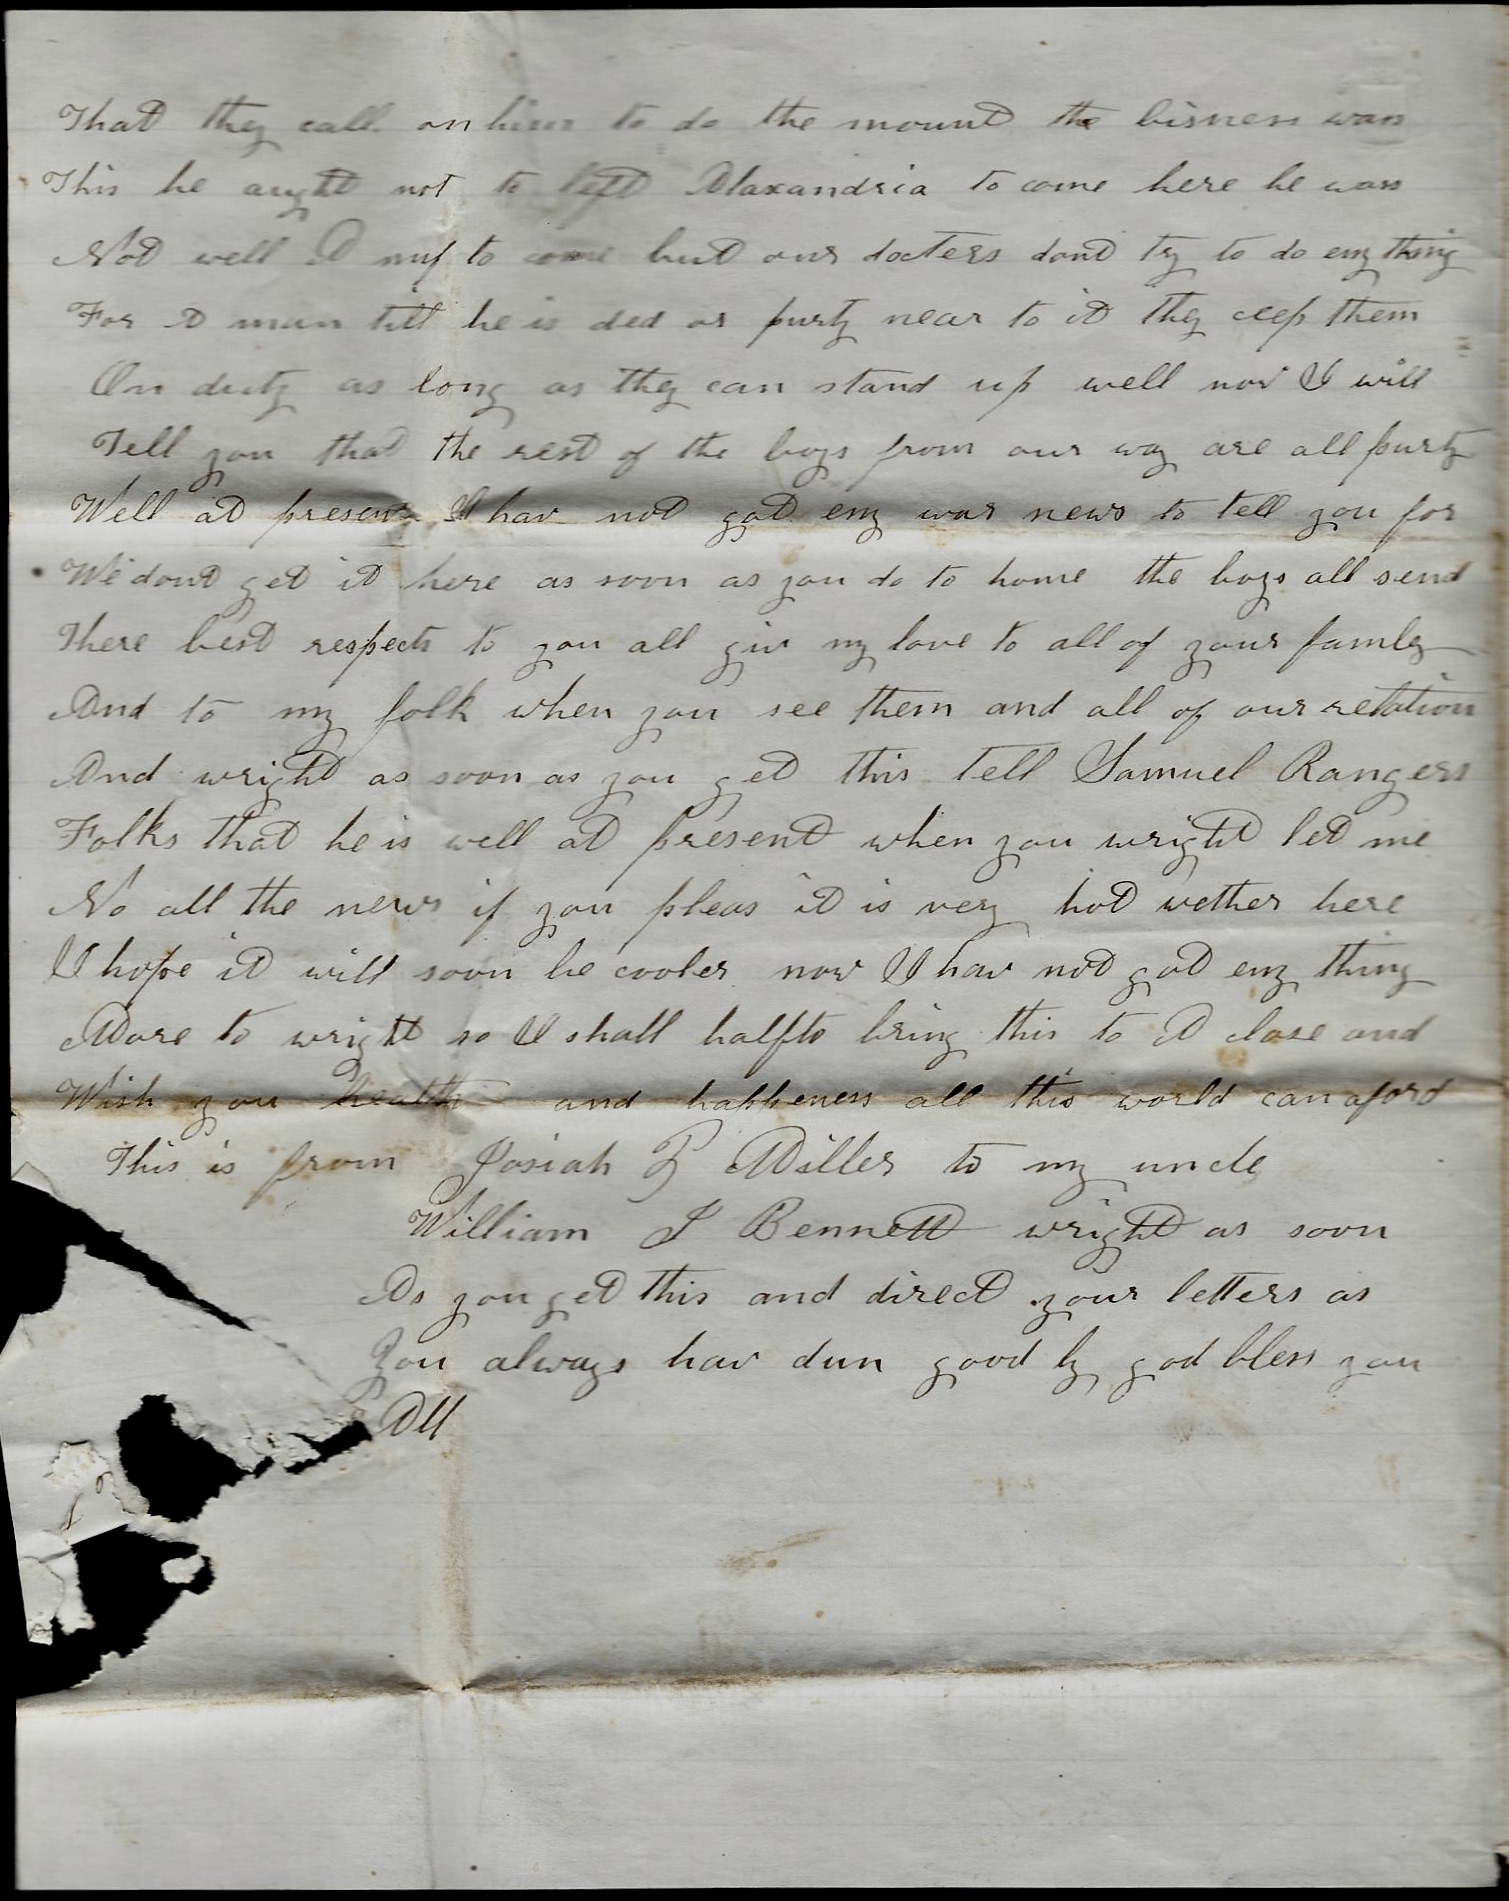 That they call on him to do the mount the bisness was
This he aught not to left Alaxandria to come here he was
Not well A nuf to come but our docters dont try to do eny thing
For A man till he is ded or purty near to it they ceep them
On duty as long as they can stand up well now I will
Tell you that the rest of the boys from our way are all purty
Well at present I hav not got eny war news to tell you for
We dont get it here as soon as you do to home the boys all send
There best respects to you all giv my love to all of your famly
And to my folk when you see them and all of our relation
And wright as soon as you get this tell Samuel Rangers
Folks that he is well at present when you wright let me
No all the news if you pleas it is very hot wether here
I hope it will soon be cooler now I hav not got eny thing
More to wright so I shall halfto bring this to A close and
Wish you health and happeness all this world can aford
This is from Josiah B Miller to my uncle
William J Bennett wright as soon
As you get this and direct your letters as
You always hav dun good by god bless you
All